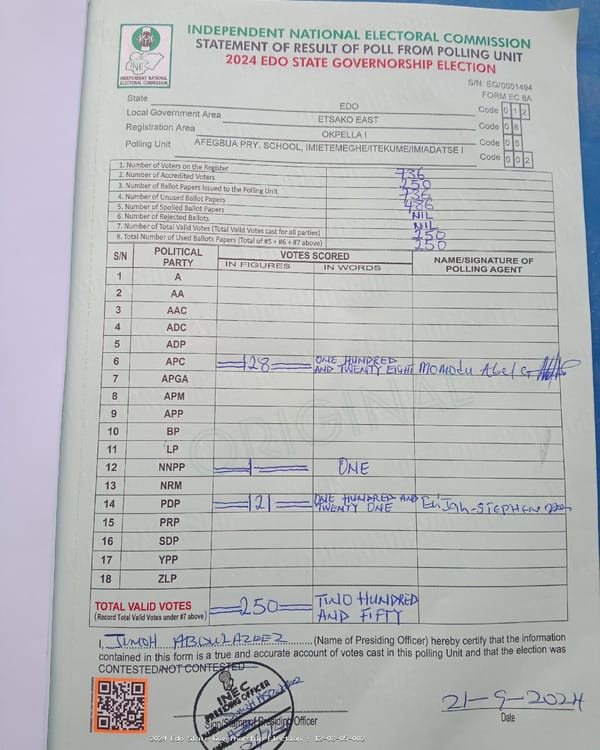 INDEPENDENT NATIONAL ELECTORAL COMMISSION
STATEMENT OF RESULT OF POLL FROM POLLING UNIT
2024 EDO STATE GOVERNORSHIP ELECTION
INEC
INDEPENDENT NATIONAL
ELECTORAL COMMISSION
S/N: EG/0001494
FORM EC 8A
State EDO Code 0 1 2
Local Government Area ETSAKO EAST Code 0 8
Registration Area OKPELLA I Code 0 5
Polling Unit AFEGBUA PRY. SCHOOL, IMIETEMEGHE/ITEKUME/IMIADATSE I Code 0 0 2
1. Number of Voters on the Register 736
2. Number of Accredited Voters 250
3. Number of Ballot Papers Issued to the Polling Unit 736
4. Number of Unused Ballot Papers 486
5. Number of Spoiled Ballot Papers NIL
6. Number of Rejected Ballots NIL
7. Number of Total Valid Votes (Total Valid Votes cast for all parties) 250
8. Total Number of Used Ballots Papers (Total of #5 + #6 + #7 above) 250
S/N POLITICAL PARTY VOTES SCORED NAME/SIGNATURE OF POLLING AGENT
IN FIGURES IN WORDS
1 A
2 AA
3 AAC
4 ADC
5 ADP
6 APC 128 ONE HUNDRED AND TWENTY EIGHT MOMODU Abel G
7 APGA
8 APM
9 APP
10 BP
11 LP
12 NNPP 1 ONE
13 NRM
14 PDP 121 ONE HUNDRED AND TWENTY ONE Elijah-STEPHEN
15 PRP
16 SDP
17 YPP
18 ZLP
ORIGINAL
TOTAL VALID VOTES 250 TWO HUNDRED AND FIFTY
(Record Total Valid Votes under #7 above)
I, JIMOH ABDULAZEEZ (Name of Presiding Officer) hereby certify that the information
contained in this form is a true and accurate account of votes cast in this polling Unit and that the election was
CONTESTED/NOT CONTESTED
INEC
PRESIDING OFFICER
21-9-2024
Sign/Stamp of Presiding Officer
Date
2024 Edo State Governorship Election - 12-08-05-002